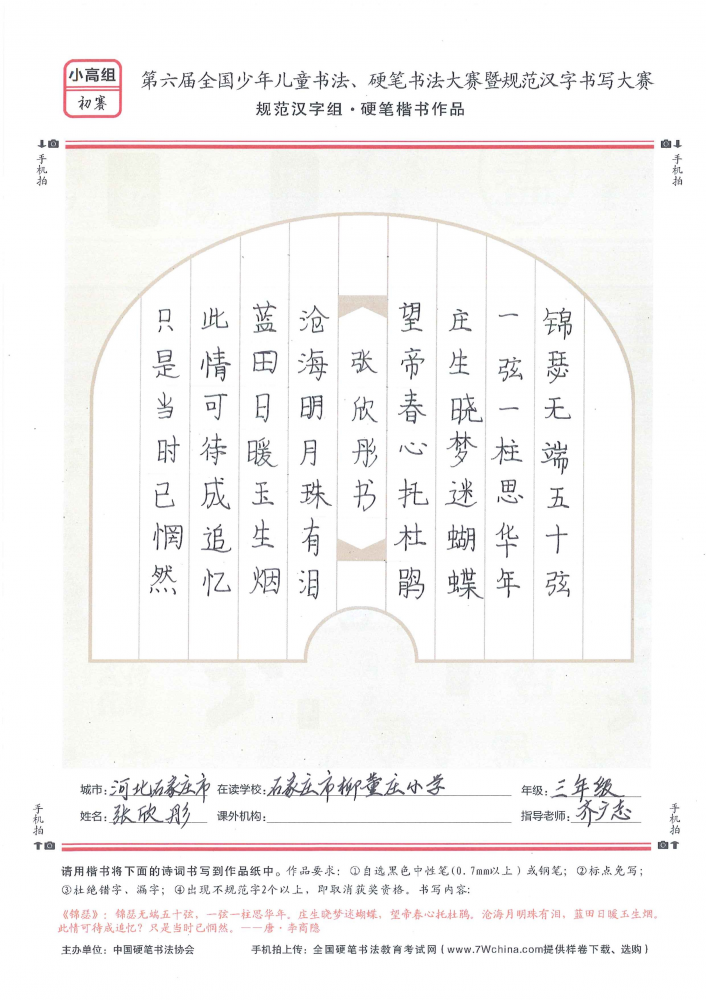 小高组
初赛
第六届全国少年儿童书法、硬笔书法大赛暨规范汉字书写大赛
规范汉字组·硬笔楷书作品
手机拍
手机拍
锦瑟无端五十弦
一弦一柱思华年
庄生晓梦迷蝴蝶
望帝春心托杜鹃
张欣彤书
沧海明月珠有泪
蓝田日暖玉生烟
此情可待成追忆
只是当时已惘然
城市:河北石家庄市 在读学校:石家庄市柳董庄小学 年级:三年级
姓名:张欣彤 课外机构: 指导老师:齐广志
手机拍
手机拍
请用楷书将下面的诗词书写到作品纸中。作品要求：①自选黑色中性笔(0.7mm以上）或钢笔；②标点免写；
③杜绝错字、漏字；④出现不规范字2个以上，即取消获奖资格。书写内容：
《锦瑟》：锦瑟无端五十弦，一弦一柱思华年。庄生晓梦迷蝴蝶，望帝春心托杜鹃。沧海月明珠有泪，蓝田日暖玉生烟。
此情可待成追忆？只是当时已惘然。——唐·李商隐
主办单位：中国硬笔书法协会 手机拍上传：全国硬笔书法教育考试网（www.7Wchina.com提供样卷下载、选购）